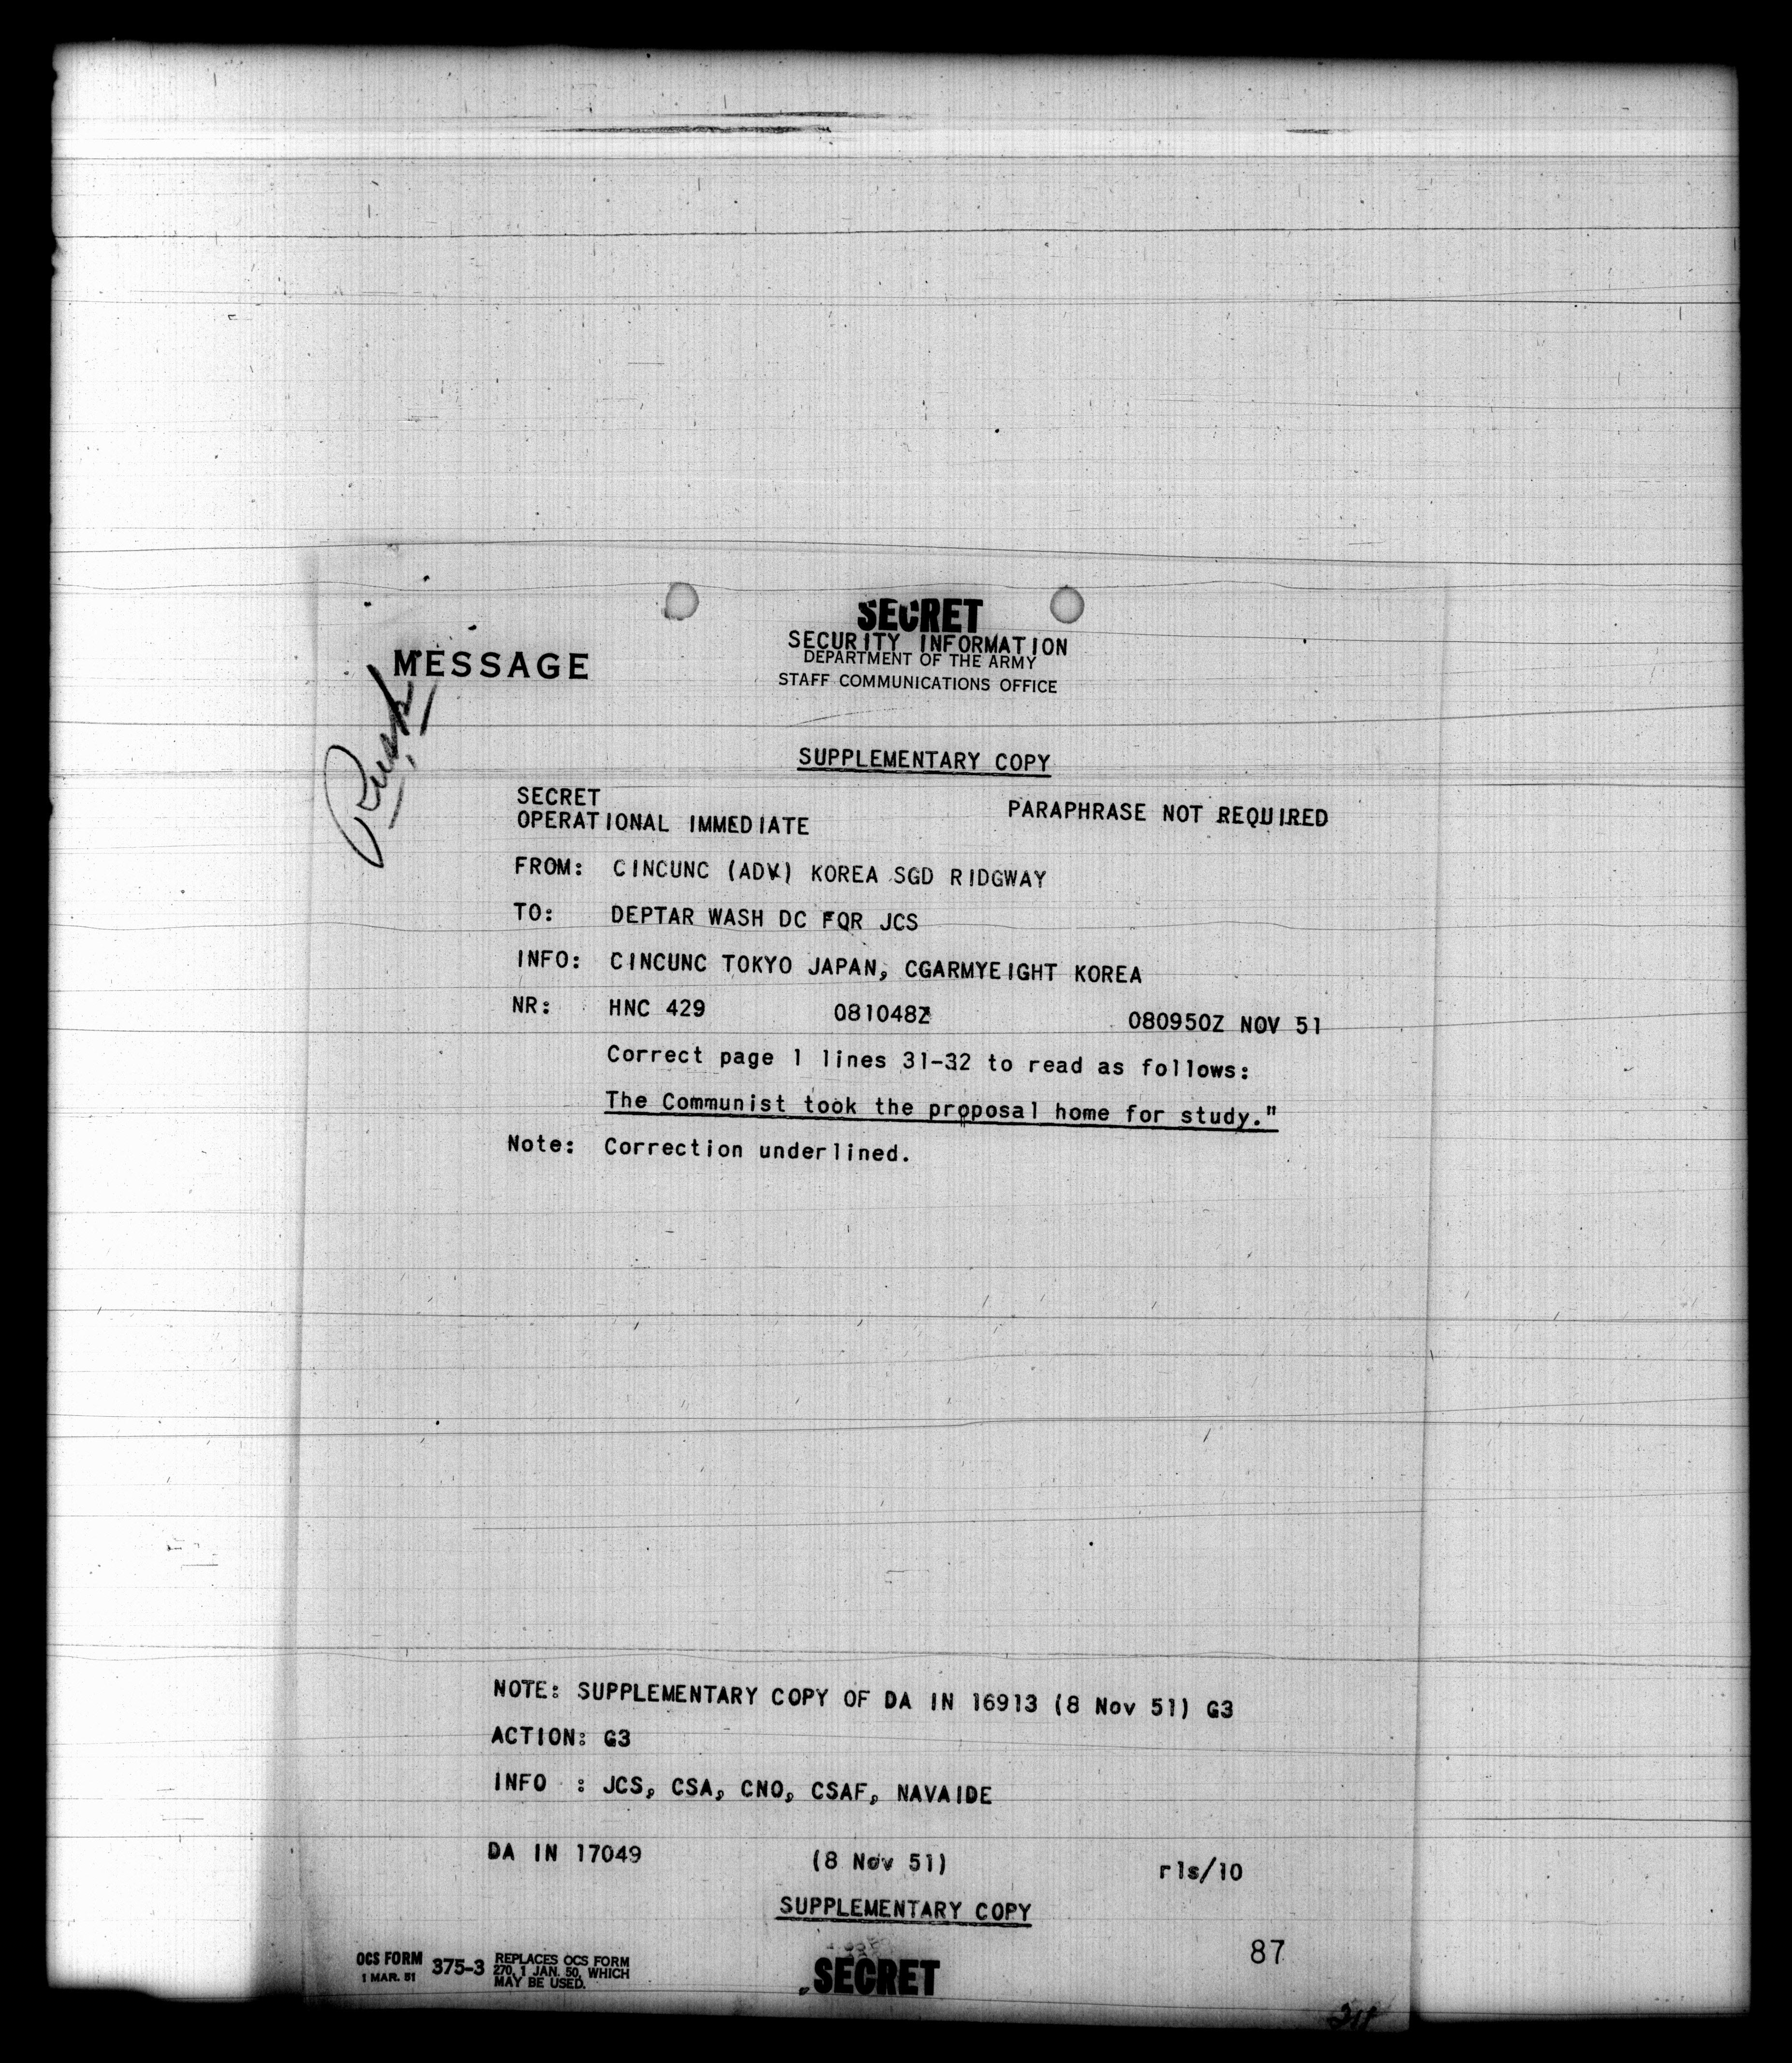 SECRET
SECURITY INFORMATION
MESSAGE
DEPARTMENT OF THE ARMY
STAFF COMMUNICATIONS OFFICE
Rusk
SUPPLEMENTARY COPY
SECRET
OPERATIONAL IMMEDIATE PARAPHRASE NOT REQUIRED
FROM: CINCUNC (ADV) KOREA SGD RIDGWAY
TO: DEPTAR WASH DC FOR JCS
INFO: CINCUNC TOKYO JAPAN, CGARMYEIGHT KOREA
NR: HNC 429 081048Z 080950Z NOV 51
Correct page 1 lines 31-32 to read as follows:
The Communist took the proposal home for study."
Note: Correction underlined.
NOTE: SUPPLEMENTARY COPY OF DA IN 16913 (8 Nov 51) G3
ACTION: G3
INFO : JCS, CSA, CNO, CSAF, NAVAIDE
DA IN 17049 (8 Nov 51) rls/10
SUPPLEMENTARY COPY
87
OCS FORM 375-3 REPLACES OCS FORM
1 MAR. 51 270, 1 JAN. 50, WHICH
MAY BE USED.
SECRET